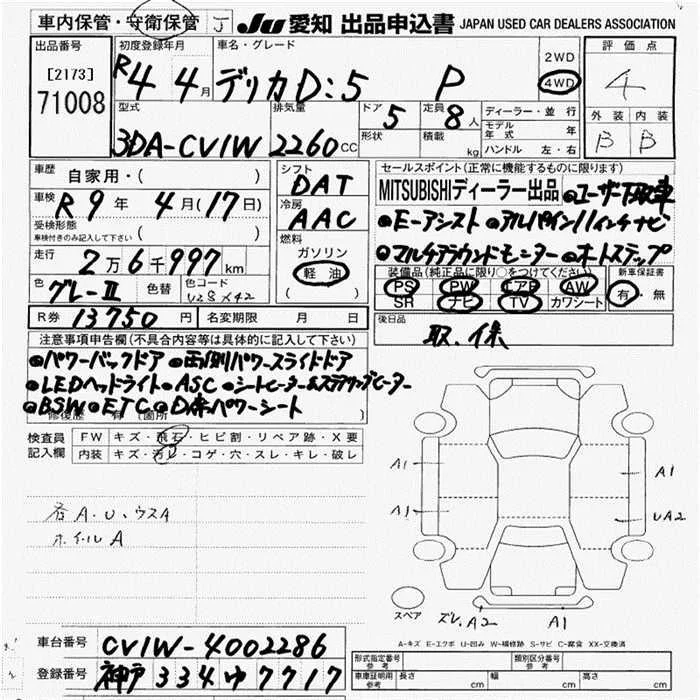 車内保管・守衛保管 J JU 愛知 出品申込書 JAPAN USED CAR DEALERS ASSOCIATION
出品番号 初度登録年月 車名・グレード 評価点
[2173] R4 4月 デリカD:5 P 2WD 4WD 4
71008
型式 排気量 ドア 5 定員 8人 ディーラー・並行 外装 内装
3DA-CV1W 2260cc 形状 積載 kg モデル年式 年 B B
ハンドル 左・右
車歴 自家用・( ) シフト DAT セールスポイント(正常に機能するものに限ります)
車検 R9年 4月(17日) 冷房 AAC MITSUBISHIディーラー出品 ●ユーザー下取車
受検形態 車検付きのみ記入して下さい( ) 燃料 ●E-アシスト ●アルパイン11インチナビ
走行 2万6千997km ガソリン ●マルチアラウンドモニター ●オートステップ
色 グレーII 色替 色コード U28 X42 軽油 ( )
装備品(純正品に限り○をつけてください) 新車保証書
PS PW エアB AW 有・無
SR ナビ TV カワシート
R券 13750円 名変期限 月 日 後日品
取.保
注意事項申告欄(不具合内容等は具体的に記入して下さい)
●パワーバックドア ●両側パワースライドドア
●LEDヘッドライト ●ASC ●シートヒーター&ステアリングヒーター
●BSW ●ETC ●D席パワーシート
修復歴 有(箇所 )
検査員 FW キズ・飛石・ヒビ割・リペア跡・X要
記入欄 内装 キズ・汚レ・コゲ・穴・スレ・キレ・破レ
各A.U、ウスA
ホイルA
A1 A1
A1 UA2
スペア ズレ.A2 A1
A-キズ E-エクボ U-凹み W-補修跡 S-サビ C-腐食 XX-交換済
車台番号 CV1W-4002286
登録番号 神戸 334 ゆ 7717
型式指定番号 参考 類別区分番号 参考
車庫証明用 参考 長さ cm 幅 cm 高さ cm